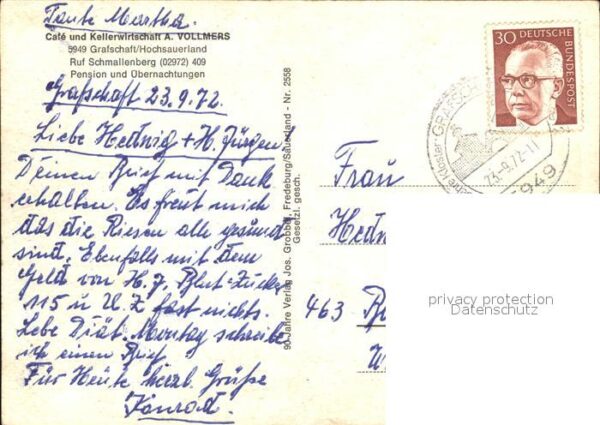 Tante Martha.
Café und Kellerwirtschaft A. VOLLMERS
5949 Grafschaft/Hochsauerland
Ruf Schmallenberg (02972) 409
Pension und Übernachtungen
Grafschaft 23.9.72.
Liebe Hedwig + H. Jürgen!
Deinen Brief mit Dank
erhalten. Es freut mich
das die Riesen alle gesund
sind. Ebenfalls mit dem
Geld von H. J. Blut-Zucker
115 u. U. Z fast nichts.
Lebe Diät. Montag schreibe
ich einen Brief
Für Heute herzl. Grüße
Konrad.
90 Jahre Verlag Jos. Grobbel, Fredeburg/Sauerland - Nr. 2558
Gesetzl. gesch.
30 DEUTSCHE BUNDESPOST
23.-9.72-11
5949
Frau
Hedw
463
privacy protection
Datenschutz